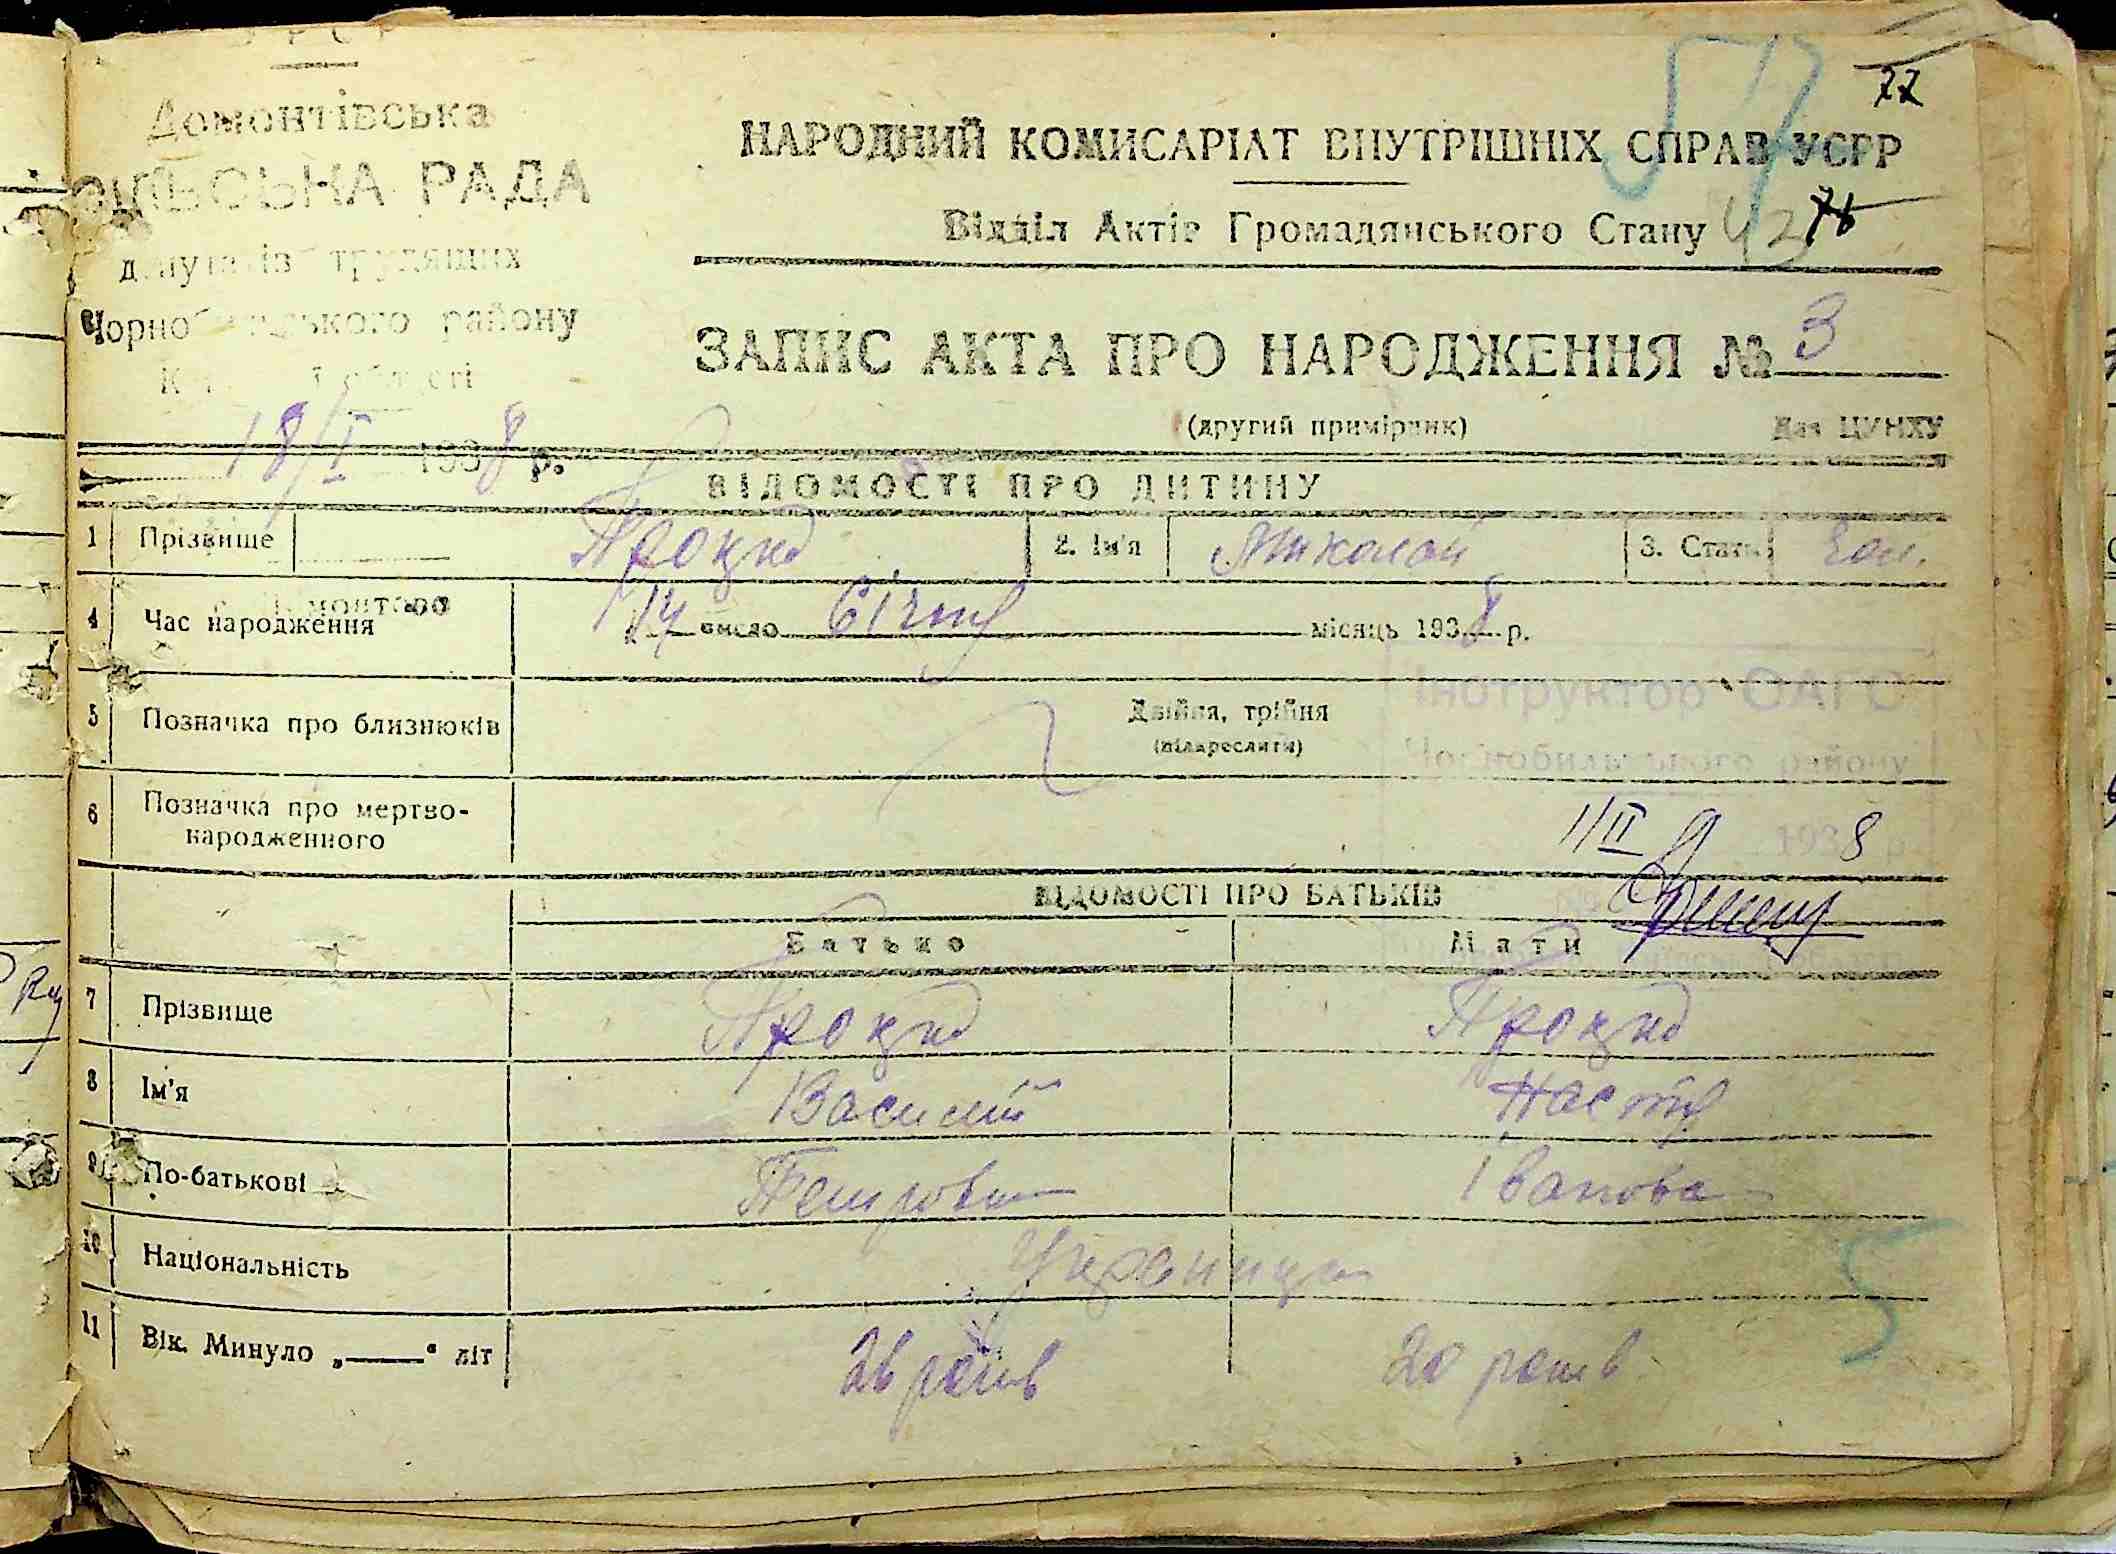 УРСР
Домонтівська
СІЛЬСЬКА РАДА
депутатів трудящих
Чорнобильського району
К області
18/I 1938 р.
22
НАРОДНИЙ КОМИСАРІАТ ВНУТРІШНІХ СПРАВ УСРР
57
Відділ Актів Громадянського Стану 42 76
ЗАПИС АКТА ПРО НАРОДЖЕННЯ № 3
(другий примірник) Для ЦУНХУ
ВІДОМОСТІ ПРО ДИТИНУ
1 Прізвище Процко 2. Ім'я Миколай 3. Стать Чол.
4 Час народження 14 число Січня місяць 1938 р.
Інструктор ОАГС
5 Позначка про близнюків Двійня, трійня
(підкреслити)
Чорнобильського району
6 Позначка про мертво-
народженного
1/II 1938 р.
ВІДОМОСТІ ПРО БАТЬКІВ
Батько Мати
7 Прізвище Процко Процко
8 Ім'я Василій Настя
9 По-батькові Петрови Іванова
10 Національність Українци
11 Вік. Минуло „——“ літ 26 років 20 років
5